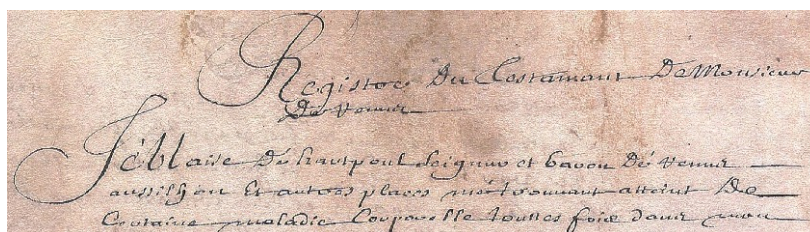 Registre du Testamant De Monsieur
De Vennes
Je blaise de hautpoul seignur et baron dé Vennes
aussilhon Et autres places mé trouvant atteint De
Certaine maladie Corporelle touttes fois dans mon